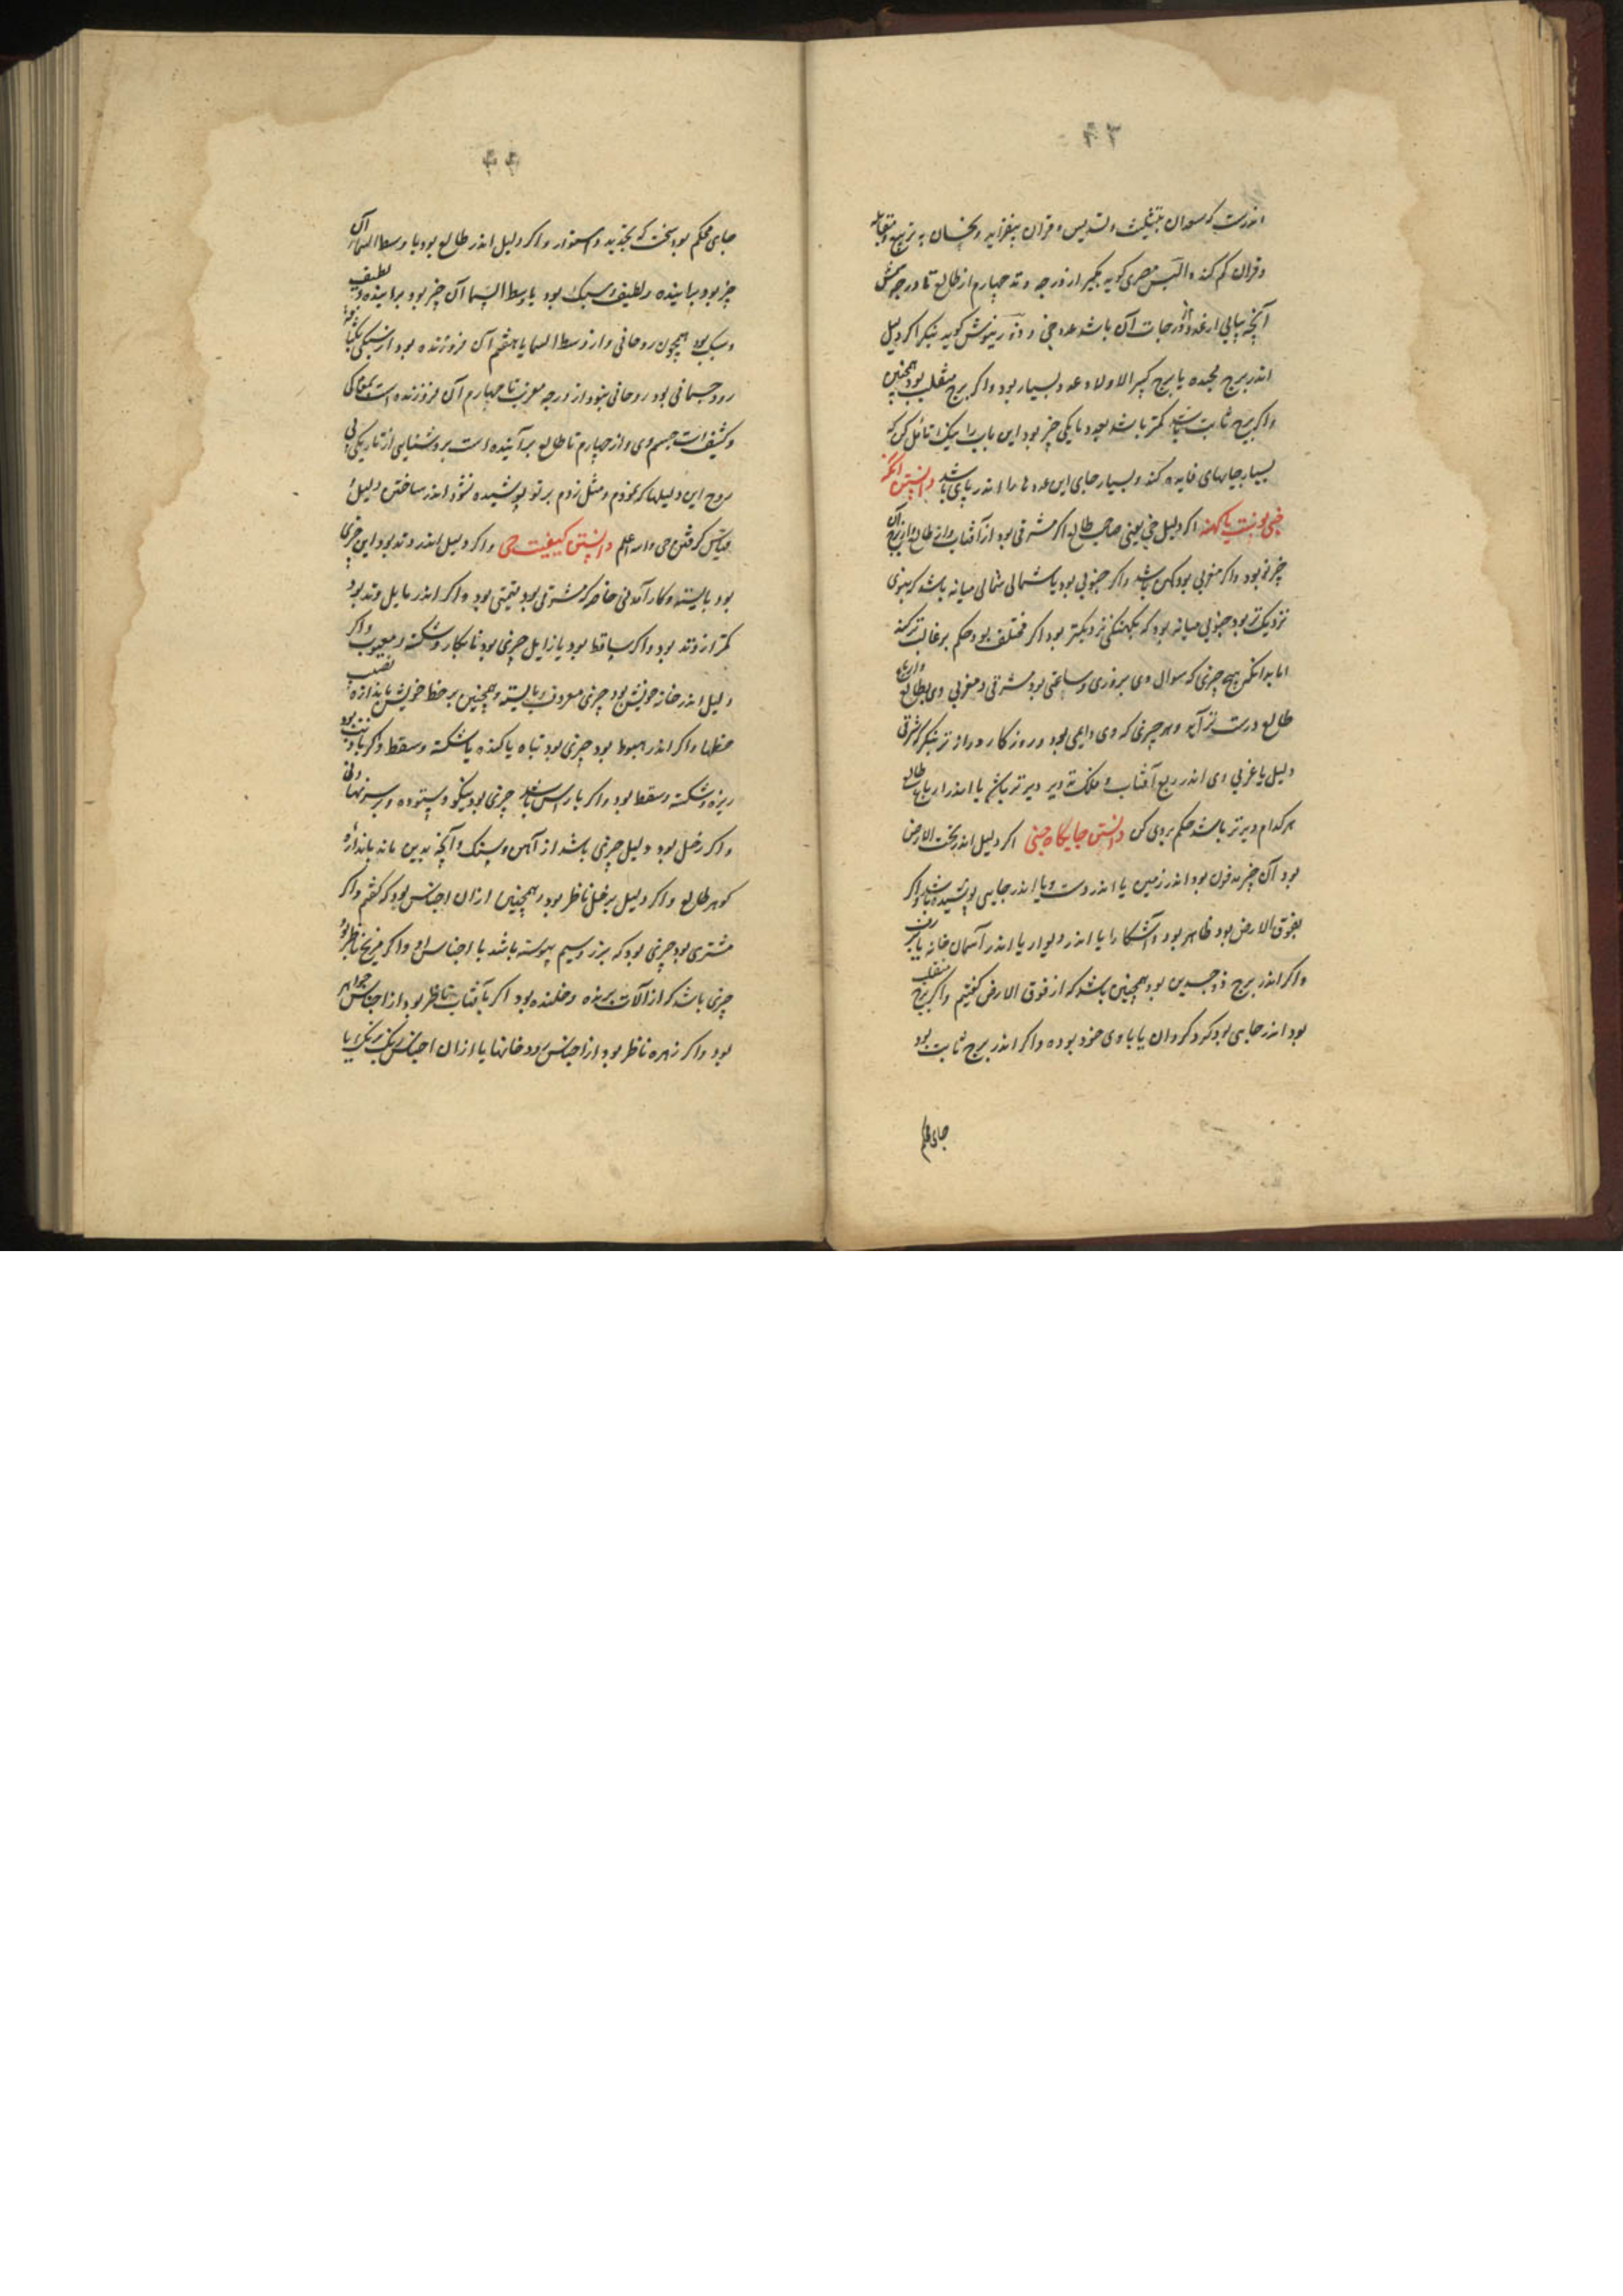 اندرست که سعدان بتثلیث و تسدیس و قران بیفزاید و نحسان به تربیع و مقابله
و قران کم کند و الیس مصری کوید بکیر از درجه وتد چهارم از طالع تا درجه شمس
آنچه بیابی از عدد درجات آن باشد عدد خبی و کوید بنکر اکر دلیل
اندر برج مجسده یا برج کثیر الاولاد عدد بسیار بود و اکر برج منقلب بود همچنین
و اکر برج ثابت باشد کمتر باشد بعدد یا یکی چیز بود این باب را نیک تأمل کن که
بسیار جایهای فایده کند و بسیار جای این عددها را اندر باشد دانستن آنکه
خبی نوست یا کهنه اکر دلیل خبی یعنی صاحب طالع اکر مشرقی بود از آفتاب و از طالع آن
چیز نو بود و اکر مغربی بود کهن باشد و اکر جنوبی بود یا شمالی شمالی میانه باشد که بنوی
نزدیکتر بود جنوبی میانه بود که بکهنکی نزدیکتر بود اکر مختلف بود حکم بر غالب تر کند
اما بدانک هیچ چیزی که سوال وی بروزی و ساعتی بود مشرقی و مغربی وی بطالع
طالع درست تر آید و هر چیزی که وی دایمی بود و روزکار دراز تر بنکر که شرقی
دلیل یا غربی وی اندر ربع آفتاب و فلک تا دیر دیرتر باشد یا اندر ارباع طالع
هر کدام دیرتر باشد حکم بر وی کن دانستن جایکاه خبی اکر دلیل اندر تحت الارض
بود آن چیز مدفون بود اندر زمین یا اندر دست و یا اندر جایی پوشیده باشد و اکر
بفوق الارض بود ظاهر بود و آشکارا یا اندر دیوار یا اندر آسمان خانه یا
و اکر اندر برج ذو جسدین بود همچنین باشد که از فوق الارض کفتیم و اکر برج منقلب
بود اندر جایی بود کرد کردان یا با وی خود بوده و اکر اندر برج ثابت بود
جای محکم
جای محکم بود سخت که بجنبد و استوار و اکر دلیل اندر طالع بود یا وسط السما آن
چیز بود براینده و لطیف و سبک بود یا وسط السما آن چیز بود براینده و لطیف
و سبک بود همچون روحانی و از وسط السما یا هفتم آن فروزنده بود از سبکی
رود جسمانی بود روحانی نبود از درجه مغرب تا چهارم آن فروزنده است
و کثیف است جسم وی و از چهارم تا طالع برآینده است بروشنایی از تاریکی بی
روح این دلیلها که نمودم و مثل زدم بر تو پوشیده نشود اندر ساختن دلیل
قیاس کرفتن خبی والله اعلم دانستن کیفیت خبی و اکر دلیل اندر وتد بود این چیزی
بود بایسته و کار آمدنی خاصه که مشرقی بود قیمتی بود و اکر اندر مایل وتد بود
کمتر از وتد بود و اکر ساقط بود یا زایل چیزی بود نابکار و شکسته و معیوب و اکر
دلیل اندر خانه خویش بود چیزی معروف و بایسته و همچنین بر حظ خویش باندازه نصیب
حظها و اکر اندر هبوط بود چیزی بود تباه یا کنده یا شکسته و سقط و اکر با ذنب بود
ریزه و شکسته و سقط بود و اکر با راس باشد چیزی بود نیکو و ستوده
و اکر زحل بود دلیل چیزی باشد از آهن و سنک و آنچه بدین ماند باندازه
کوهر طالع و اکر دلیل بزحل ناظر بود و همچنین ازان اجناس بود که کفتم و اکر
مشتری بود چیزی بود که بزر و سیم پیوسته باشد یا اجناس او و اکر مریخ ناظر بود
چیزی باشد که از آلات برنده و خلنده بود اکر بآفتاب ناظر بود از اجناس جواهر
بود و اکر زهره ناظر بود از اجناس رودخانها یا ازان اجناس رنک برنک یا